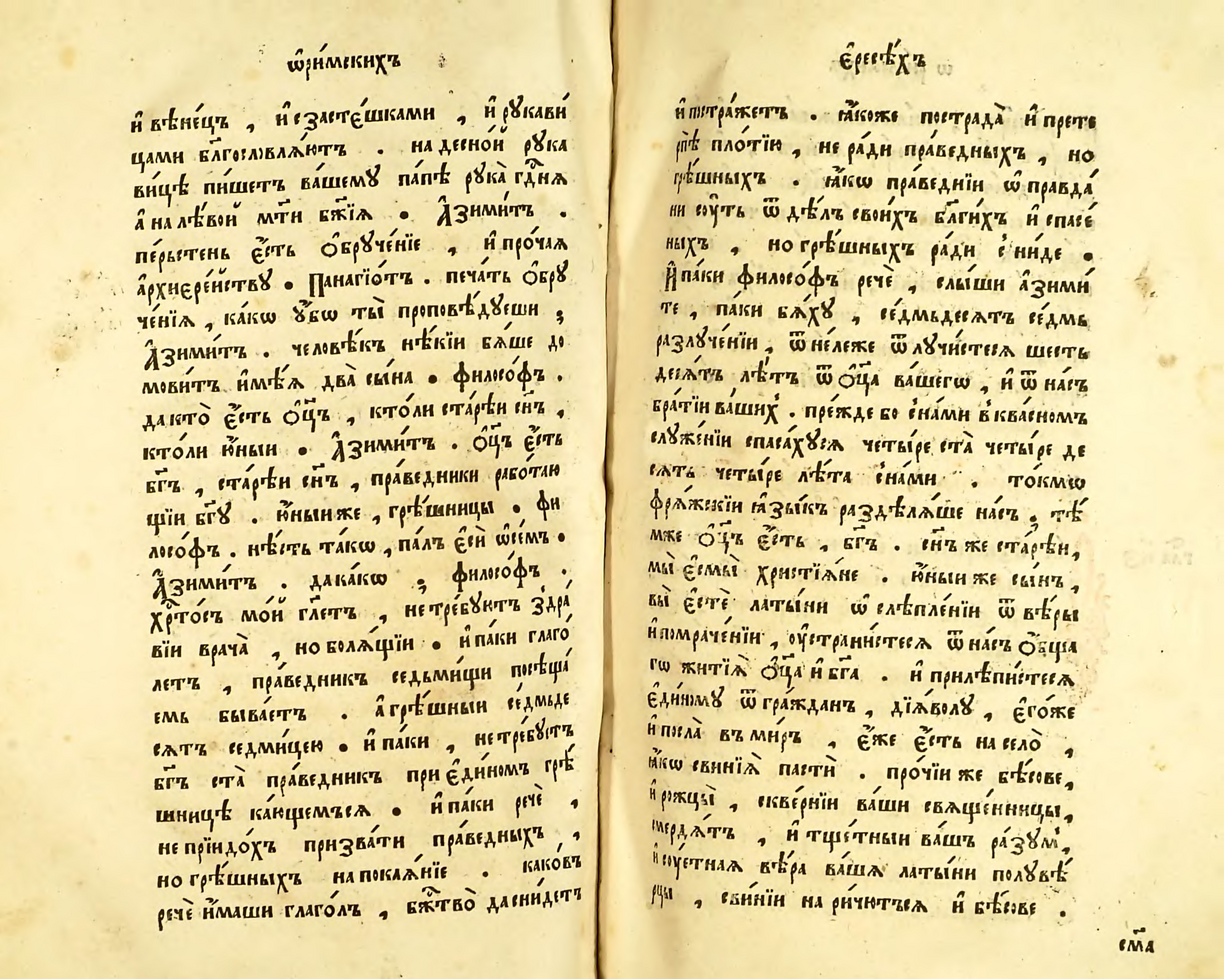 ѡ҆ри́мскихъ
и҆ вѣне́цъ , и҆ сзасте́шками , и҆ рꙋкави́
цами бл҃гословлѧ́ютъ . на десно́й рꙋка
вицѣ пи́шетъ ва́шемꙋ па́пѣ рꙋка̀ гдⷭ҇нѧ
а҆ на лѣ́вой мт҃и бж҃їѧ . А҆зими́тъ .
пе́рьстень є҆́сть о҆брꙋче́нїе , и҆ про́чаѧ
а҆рхиере́йствꙋ . Панагїѡ́тъ . печа́ть о҆брꙋ
че́нїѧ , ка́кѡ ᲂу҆́бѡ ты̀ проповѣ́дꙋеши ;
А҆зими́тъ . человѣ́къ нѣ́кїи бѧ́ше до
мови́тъ и҆мѣ́ѧ два̀ сы́на . філосо́фъ .
да кто̀ є҆́сть ѻ҆ц҃ъ , кто́ли ста́рѣи сн҃ъ ,
кто́ли ю҆́ныи . А҆зими́тъ . ѻ҆ц҃ъ є҆́сть
бг҃ъ , ста́рѣи сн҃ъ , пра́ведники рабо́таю
щїи бг҃ꙋ . ю҆́ныи же , грѣ́шницы . фи
лосо́фъ . нѣ́сть та́кѡ , па́лъ є҆сѝ ѡ҆се́мъ .
А҆зими́тъ . да ка́кѡ ; філосо́фъ .
хрⷭ҇то́съ мо́й гл҃етъ , не тре́бꙋютъ здра́
вїи врача̀ , но болѧ́щїи . и҆ па́ки глаго́
летъ , пра́ведникъ седьми́щи посѣща́
емь быва́етъ . а҆ грѣ́шныи се́дмьде
сѧтъ седмицею . и҆ па́ки , не тре́бꙋетъ
бг҃ъ ста̀ пра́ведникъ при є҆ди́номъ грѣ́
шницѣ ка́ющемъсѧ . и҆ па́ки речѐ ,
не прїидо́хъ призва́ти пра́ведныхъ ,
но грѣ́шныхъ на покаѧ́нїе . како́въ
речѐ и҆́маши глаго́лъ , бж҃тво̀ да сни́детъ
є҆́ресѣхъ
и҆ постра́жетъ . ꙗ҆́коже пострада̀ и҆ прете
рпѣ̀ пло́тїю , не ра́ди пра́ведныхъ , но
грѣ́шныхъ . ꙗ҆́кѡ пра́веднїи ѡ҆правда́
ни сꙋ́ть ѿ дѣ́лъ свои́хъ бл҃ги́хъ и҆ спасе́
ныхъ , но грѣ́шныхъ ра́ди сни́де .
И҆ па́ки філосо́фъ речѐ , слы́ши а҆зими́
те , па́ки бѧ́хꙋ , се́дмьдесѧтъ се́дмь
разлꙋче́нїи , ѿне́леже ѿлꙋчи́стесѧ шесть
десѧ́тъ лѣ́тъ ѿ ѻ҆ц҃а ва́шегѡ , и҆ ѿ на́съ
бра́тїи ва́шихъ . пре́жде бо с на́ми в ква́сномъ
слꙋже́нїи спаса́хꙋсѧ четы́ре ста̀ четы́ре де
сѧтъ четы́ре лѣ́та с на́ми . то́кмѡ
фрѧ́жскїи ꙗ҆зы́къ раздѣлѧ́ше на́съ . тѣ́
мже ѻ҆ц҃ъ є҆́сть , бг҃ъ . сн҃ъ же ста́рѣи ,
мы̀ є҆смы̀ христїѧ́не . ю҆́ныи же сы́нъ ,
вы̀ є҆стѐ латы́ни ѡ҆слѣпле́нїи ѿ вѣ́ры
и҆ помраче́нїи , ᲂу҆страни́стесѧ ѿ на́съ ѻ҆́бща
гѡ житїѧ̀ ѻ҆ц҃а и҆ бг҃а . и҆ прилѣпи́стесѧ
є҆ди́номꙋ ѿ гра́жданъ , дїѧ́волꙋ , є҆го́же
и҆ посла̀ въ ми́ръ , є҆́же є҆́сть на село̀ ,
ꙗ҆́кѡ свинїѧ̀ пастѝ . про́чїи же бѣ́сове ,
и҆ рожцы̀ , скве́рнїи ва́ши свѧще́нницы ,
смердѧ́тъ , и҆ тще́тныи ва́шъ ра́зꙋм ,
и҆ сꙋ́етнаѧ вѣ́ра ва́шѧ латы́ни полꙋвѣ́
рцы , свинїи на ричю́тъсѧ и҆ бѣ́сове .
см҃а